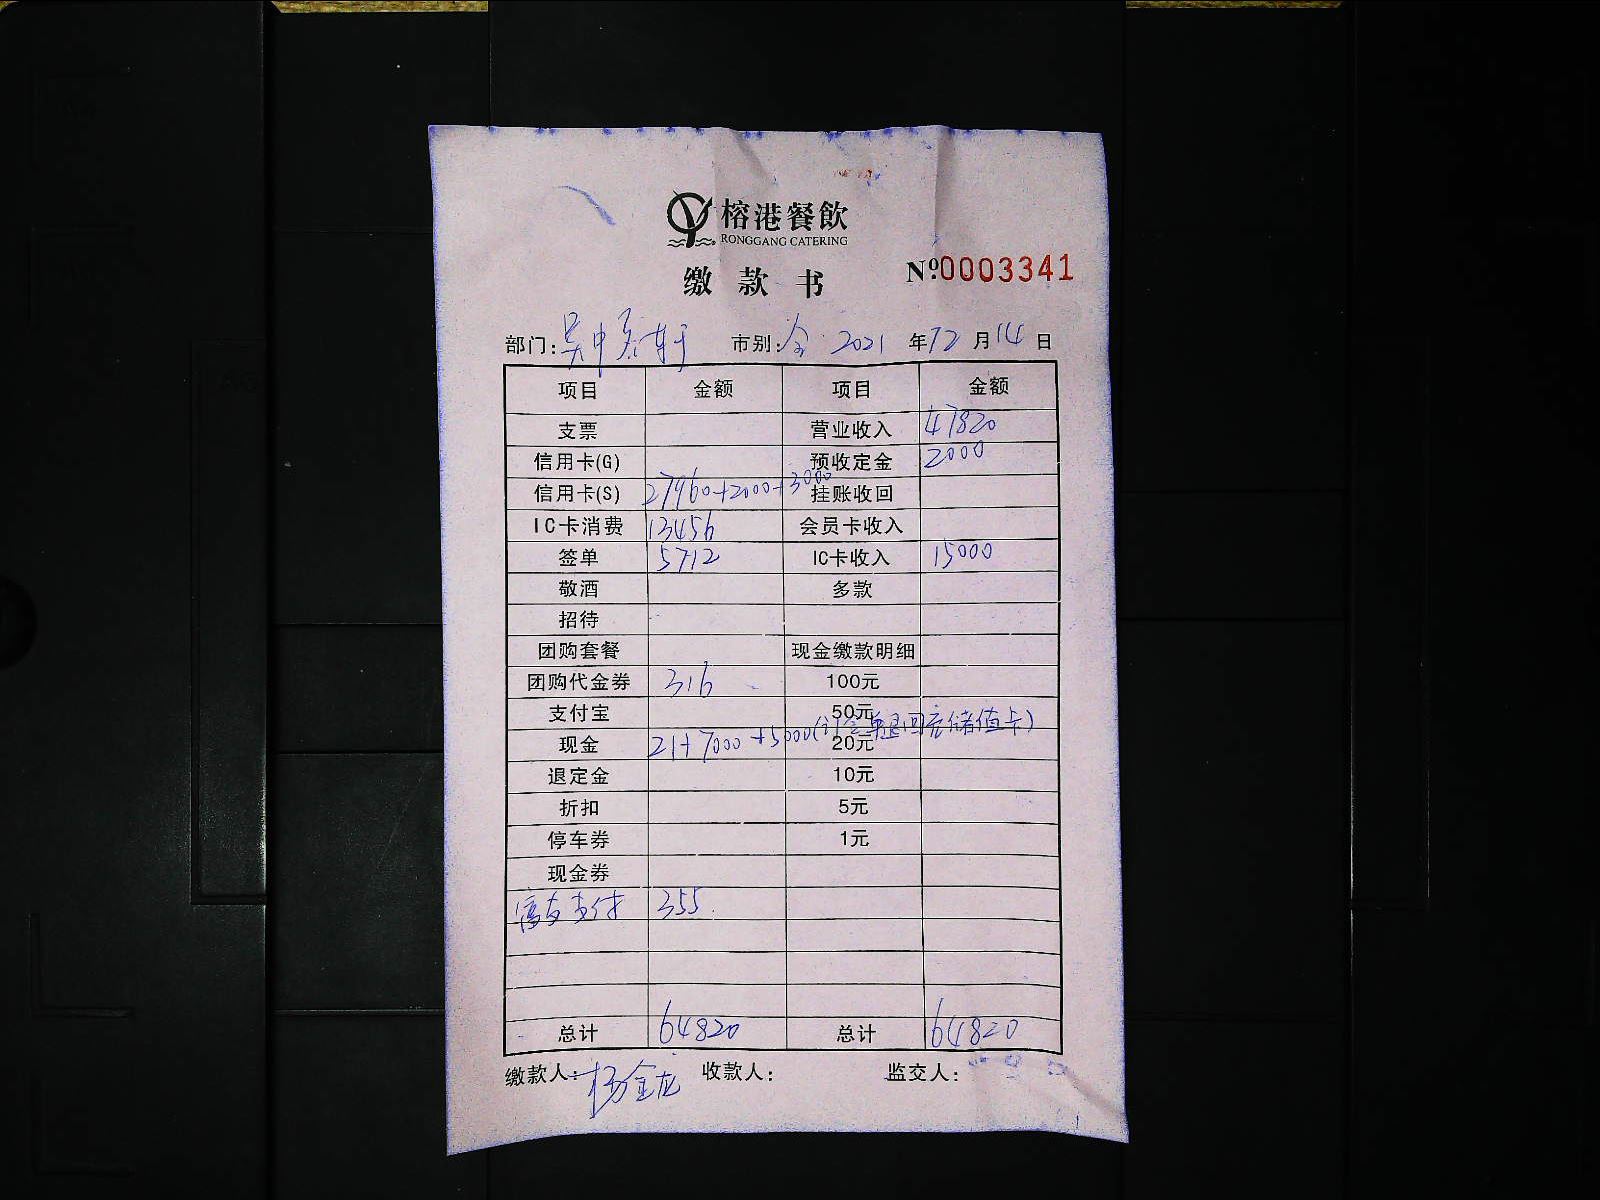 榕港餐飲
RONGGANG CATERING
缴款书 №0003341
部门：吴中 市别：全 2021 年 12 月 14 日
项目 金额 项目 金额
支票 营业收入 47820
信用卡(G) 预收定金 2000
信用卡(S) 27960+2000+3000 挂账收回
IC卡消费 13456 会员卡收入
签单 5712 IC卡收入 15000
敬酒 多款
招待
团购套餐 现金缴款明细
团购代金券 316 100元
支付宝 50元
现金 21+7000+5000(订金单退回充储值卡) 20元
退定金 10元
折扣 5元
停车券 1元
现金券
支付 355
总计 64820 总计 64820
缴款人：杨金龙 收款人： 监交人：